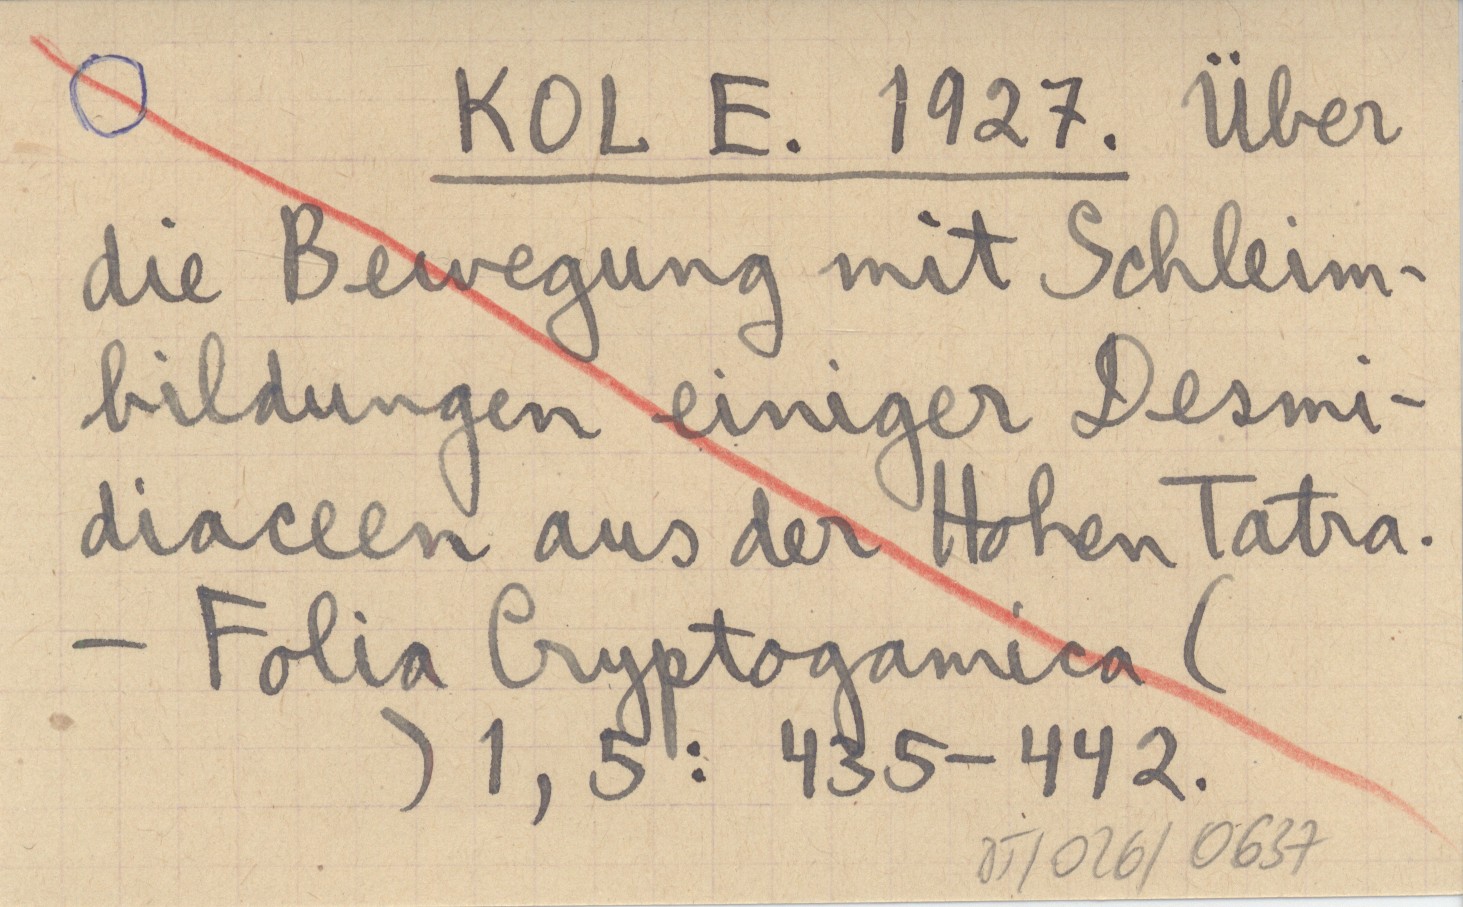 KOL E. 1927. Über
die Bewegung mit Schleim-
bildungen einiger Desmi-
diaceen aus der Hohen Tatra.
- Folia Cryptogamica (
) 1, 5: 435-442.
/026/ 0637